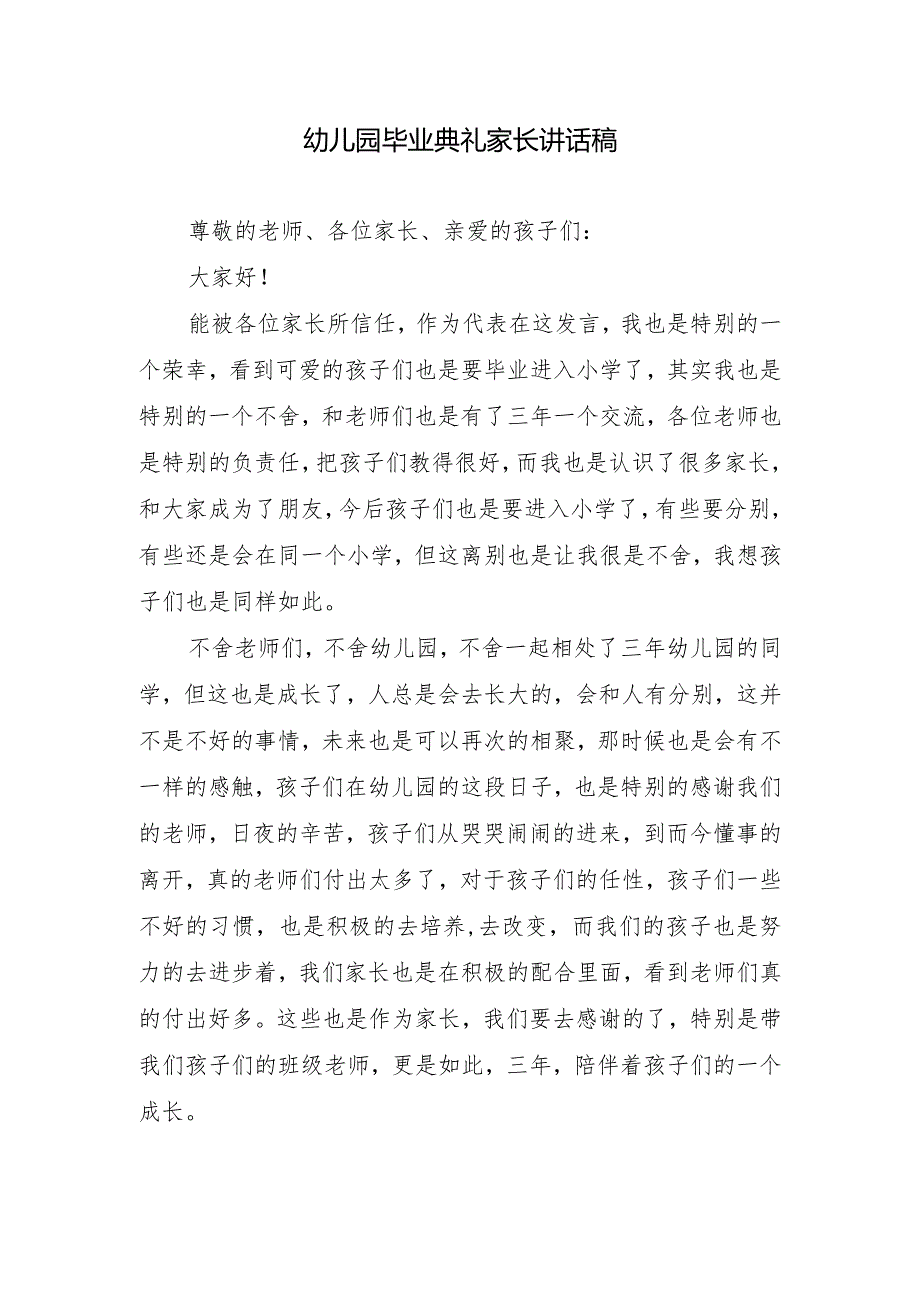 幼儿园毕业典礼家长讲话稿
尊敬的老师、各位家长、亲爱的孩子们:
大家好!
能被各位家长所信任,作为代表在这发言,我也是特别的一
个荣幸,看到可爱的孩子们也是要毕业进入小学了,其实我也是
特别的一个不舍,和老师们也是有了三年一个交流,各位老师也
是特别的负责任,把孩子们教得很好,而我也是认识了很多家长,
和大家成为了朋友,今后孩子们也是要进入小学了,有些要分别,
有些还是会在同一个小学,但这离别也是让我很是不舍,我想孩
子们也是同样如此。
不舍老师们,不舍幼儿园,不舍一起相处了三年幼儿园的同
学,但这也是成长了,人总是会去长大的,会和人有分别,这并
不是不好的事情,未来也是可以再次的相聚,那时候也是会有不
一样的感触,孩子们在幼儿园的这段日子,也是特别的感谢我们
的老师,日夜的辛苦,孩子们从哭哭闹闹的进来,到而今懂事的
离开,真的老师们付出太多了,对于孩子们的任性,孩子们一些
不好的习惯,也是积极的去培养,去改变,而我们的孩子也是努
力的去进步着,我们家长也是在积极的配合里面,看到老师们真
的付出好多。这些也是作为家长,我们要去感谢的了,特别是带
我们孩子们的班级老师,更是如此,三年,陪伴着孩子们的一个
成长。